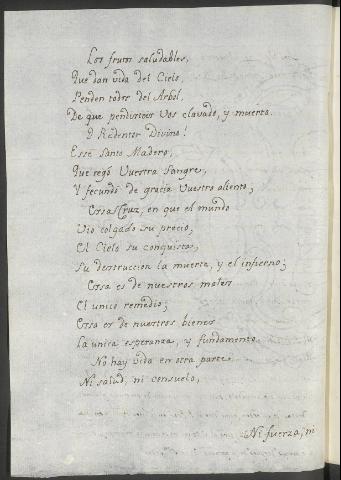 Los frutos saludables,
Que dan vida del Cielo,
Penden todos del Arbol,
De que pendisteis Vos clavado, y muerto.
O Redentor Divino!
Esse Santo Madero,
Que regó Vuestra Sangre,
Y fecundó de gracia Vuestro aliento;
Essa Cruz, en que el mundo
Vió colgado su precio,
El Cielo su conquista,
Su destruccion la muerte, y el infierno;
Essa es de nuestros males
El unico remedio;
Essa es de nuestros bienes
La unica esperanza, y fundamento.
No hay vida en otra parte,
Ni salud, ni consuelo,
Ni fuerza, ni